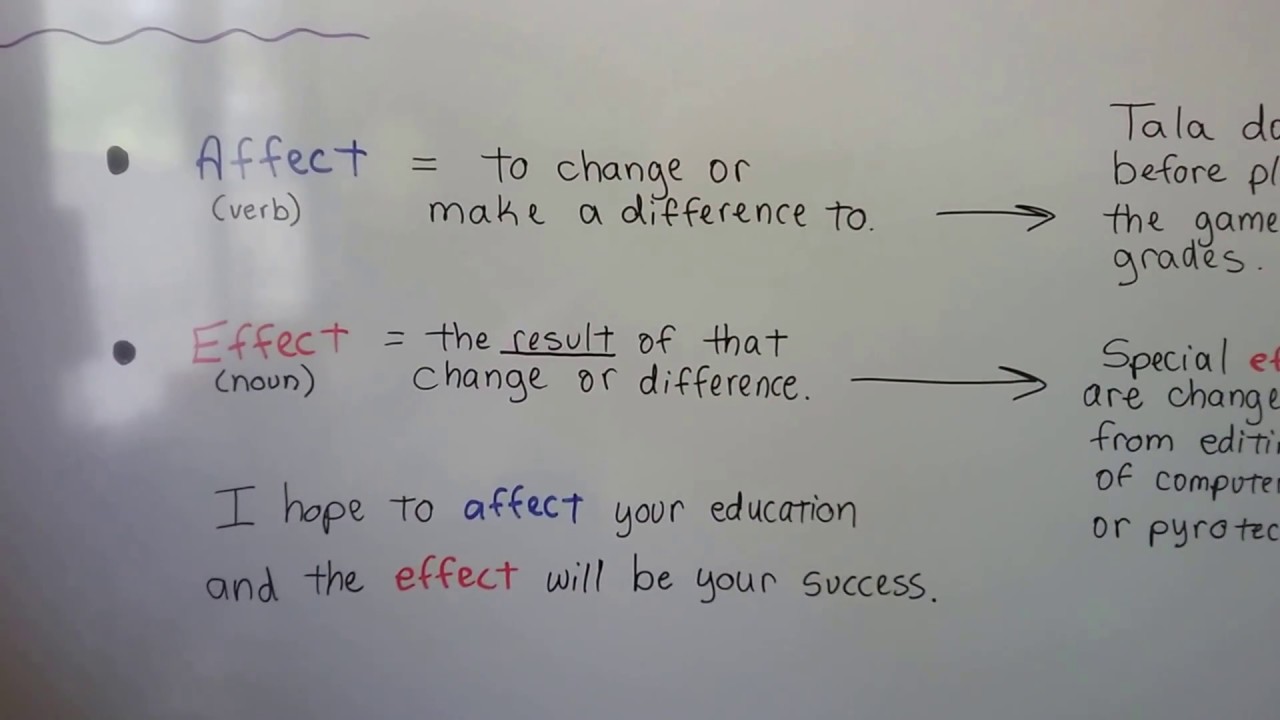 Affect = to change or
(verb) make a difference to.
Effect = the result of that
(noun) change or difference.
I hope to affect your education
and the effect will be your success.
Tala
before
the game
grades.
Special
are change
from
of
or